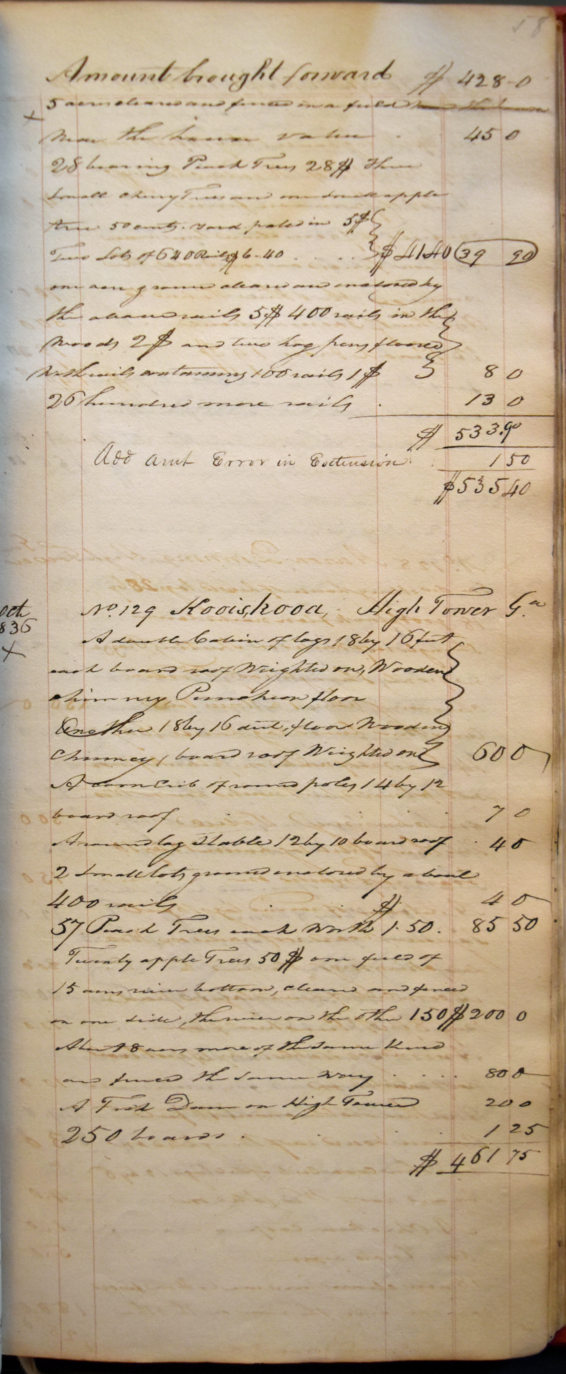 58
Amount brought forward $ 428-0
5 acres cleared and fenced in a field
x
near the house value . 45 0
28 bearing Peach Trees 28$ Three
small cherry Trees and one small apple
tree 50 cents. yard paled in 5$
Two Lots of 640 Rails $6-40 . . . . $ 41 40 39 90
one acre ground cleared and enclosed by
the above rails 5$ 400 rails in the
woods 2$ and two hog pens floored
with rails containing 100 rails 1$ 8 0
26 hundred more rails . 13 0
$ 533.90
Add Amt Error in Extension . . 1 50
$535 40
Oct
1836
x
No. 129 Kooiskooa, High Tower Ga
A double Cabin of logs 18 by 16 feet
each board roof Weighted on, Wooden
chimney Puncheon floor
One other 18 by 16 dirt floor Wooden
Chimney, board roof Weighted on 60 0
A corn Crib of round poles 14 by 12
board roof . . . . 7 0
A round log Stable 12 by 10 board roof . 4 0
2 Small lots ground enclosed by about
400 rails . . $ . 4 0
57 Peach Trees each worth 1.50 . 85 50
Twenty apple Trees 50$ one field of
15 acres river bottom, cleared and fenced
on one side, the river on the other 150$ 200 0
About 8 acres more of the same kind
and fenced the same way . . . . 80 0
A Fish Dam on High Tower 20 0
250 boards . . . . 1 25
$ 461 75